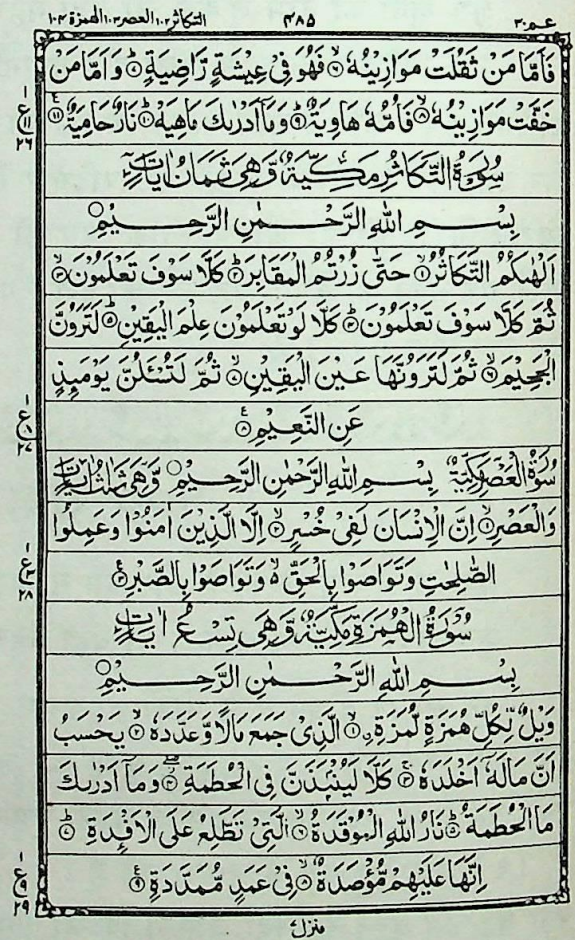 عم ٣٠ ٤٨٥ التكاثر ١٠٢ العصر ١٠٣ الهمزة ١٠٤
فَاَمَّا مَنْ ثَقُلَتْ مَوَازِيْنُهٗ ۙ﴿۶﴾ فَهُوَ فِيْ عِيْشَةٍ رَّاضِيَةٍ ؕ﴿۷﴾ وَاَمَّا مَنْ
خَفَّتْ مَوَازِيْنُهٗ ۙ﴿۸﴾ فَاُمُّهٗ هَاوِيَةٌ ؕ﴿۹﴾ وَمَاۤ اَدْرٰىكَ مَاهِيَهْ ؕ﴿۱۰﴾ نَارٌ حَامِيَةٌ ﴿۱۱﴾
سُوْرَةُ التَّكَاثُرِ مَكِّيَّةٌ وَّهِيَ ثَمَانُ اٰيَاتٍ
بِسْمِ اللهِ الرَّحْمٰنِ الرَّحِيْمِ
اَلْهٰىكُمُ التَّكَاثُرُ ۙ﴿۱﴾ حَتّٰى زُرْتُمُ الْمَقَابِرَ ؕ﴿۲﴾ كَلَّا سَوْفَ تَعْلَمُوْنَ ۙ﴿۳﴾
ثُمَّ كَلَّا سَوْفَ تَعْلَمُوْنَ ؕ﴿۴﴾ كَلَّا لَوْ تَعْلَمُوْنَ عِلْمَ الْيَقِيْنِ ؕ﴿۵﴾ لَتَرَوُنَّ
الْجَحِيْمَ ۙ﴿۶﴾ ثُمَّ لَتَرَوُنَّهَا عَيْنَ الْيَقِيْنِ ۙ﴿۷﴾ ثُمَّ لَتُسْـَٔلُنَّ يَوْمَىِٕذٍ
عَنِ النَّعِيْمِ ﴿۸﴾
سُوْرَةُ الْعَصْرِ مَكِّيَّةٌ بِسْمِ اللهِ الرَّحْمٰنِ الرَّحِيْمِ وَّهِيَ ثَلٰثُ اٰيَاتٍ
وَالْعَصْرِ ۙ﴿۱﴾ اِنَّ الْاِنْسَانَ لَفِيْ خُسْرٍ ۙ﴿۲﴾ اِلَّا الَّذِيْنَ اٰمَنُوْا وَعَمِلُوا
الصّٰلِحٰتِ وَتَوَاصَوْا بِالْحَقِّ ۙ۬ وَتَوَاصَوْا بِالصَّبْرِ ﴿۳﴾
سُوْرَةُ الْهُمَزَةِ مَكِّيَّةٌ وَّهِيَ تِسْعُ اٰيَاتٍ
بِسْمِ اللهِ الرَّحْمٰنِ الرَّحِيْمِ
وَيْلٌ لِّكُلِّ هُمَزَةٍ لُّمَزَةِ ۙ﴿۱﴾ اِ۟لَّذِيْ جَمَعَ مَالًا وَّعَدَّدَهٗ ۙ﴿۲﴾ يَحْسَبُ
اَنَّ مَالَهٗۤ اَخْلَدَهٗ ۚ﴿۳﴾ كَلَّا لَيُنْۢبَذَنَّ فِي الْحُطَمَةِ ۖ﴿۴﴾ وَمَاۤ اَدْرٰىكَ
مَا الْحُطَمَةُ ؕ﴿۵﴾ نَارُ اللهِ الْمُوْقَدَةُ ۙ﴿۶﴾ الَّتِيْ تَطَّلِعُ عَلَى الْاَفْـِٕدَةِ ؕ﴿۷﴾
اِنَّهَا عَلَيْهِمْ مُّؤْصَدَةٌ ۙ﴿۸﴾ فِيْ عَمَدٍ مُّمَدَّدَةٍ ﴿۹﴾
ع ۱۱ ۲۶
ع ۸ ۲۷
ع ۳ ۲۸
ع ۹ ۲۹
منزل ۷